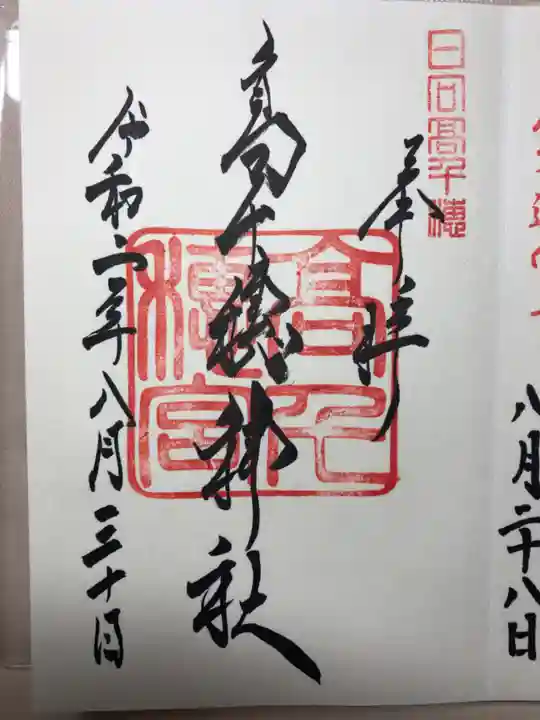 八月二十八日
日向高千穂
奉拝
高千穂宮
高千穂神社
令和二年八月三十日